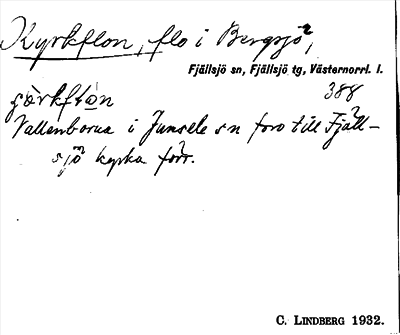 Kyrkflon, flo i Bergsjö,
Fjällsjö sn, Fjällsjö tg, Västernorrl. l.
388
Vallenborna i Junsele sn foro till Fjäll-
sjö kyrka förr.
C. LINDBERG 1932.